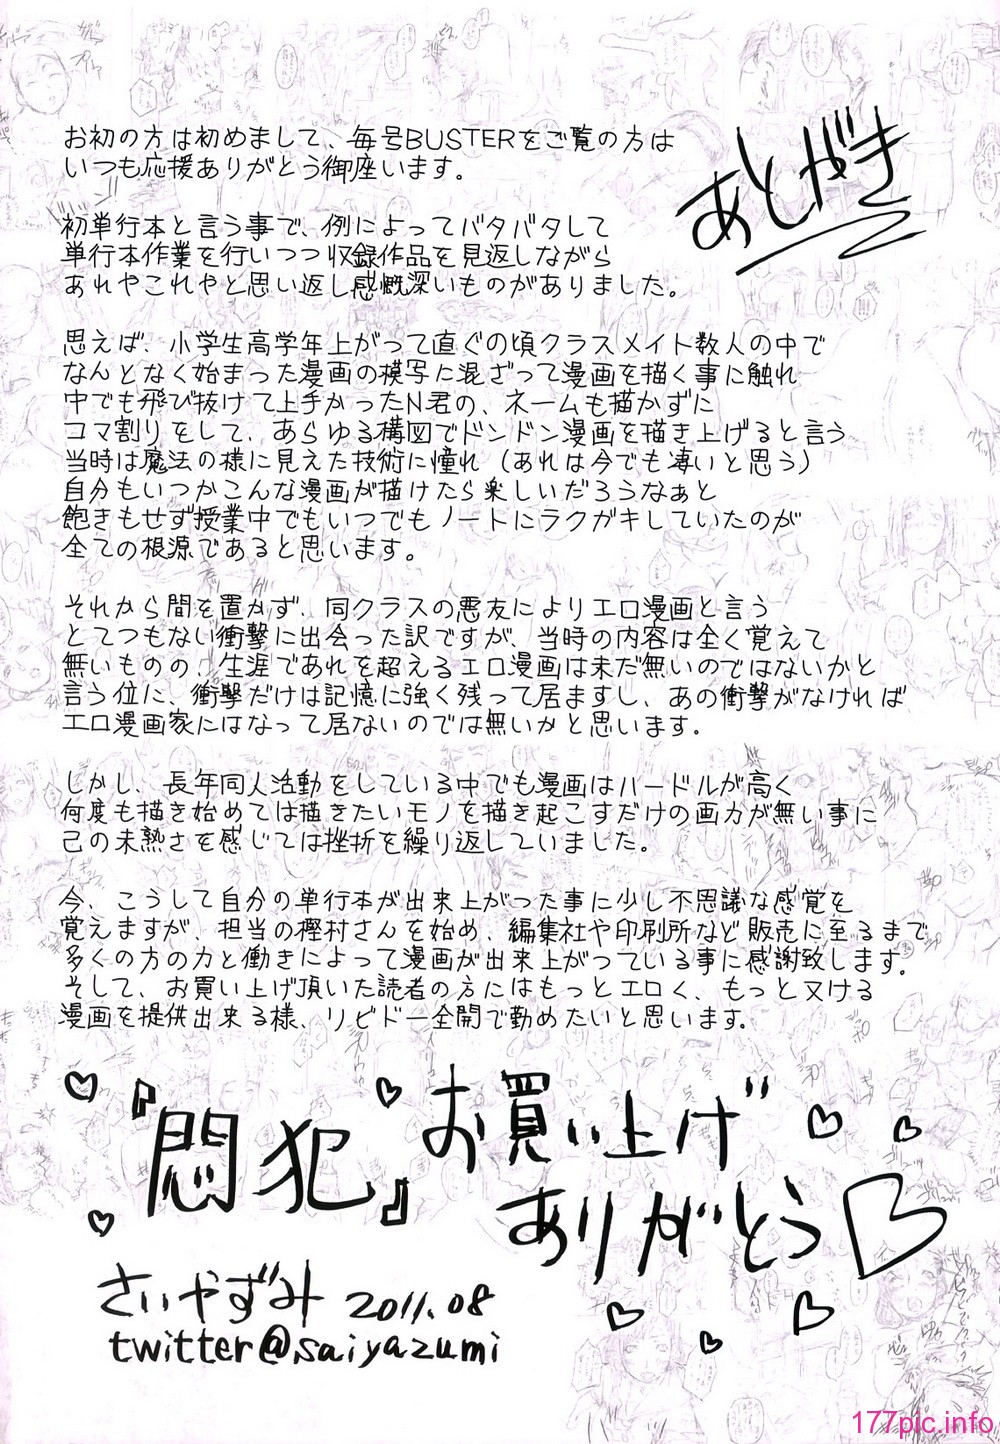 あとがき
お初の方は初めまして、毎号BUSTERをご覧の方は
いつも応援ありがとう御座います。
初単行本と言う事で、例によってバタバタして
単行本作業を行いつつ収録作品を見返しながら
あれやこれやと思い返し感慨深いものがありました。
思えば、小学生高学年上がって直ぐの頃クラスメイト数人の中で
なんとなく始まった漫画の模写に混ざって漫画を描く事に触れ
中でも飛び抜けて上手かったN君の、ネームも描かずに
コマ割りをして、あらゆる構図でドンドン漫画を描き上げると言う
当時は魔法の様に見えた技術に憧れ(あれは今でも凄いと思う)
自分もいつかこんな漫画が描けたら楽しいだろうなぁと
飽きもせず授業中でもいつでもノートにラクガキしていたのが
全ての根源であると思います。
それから間を置かず、同クラスの悪友によりエロ漫画と言う
とてつもない衝撃に出会った訳ですが、当時の内容は全く覚えて
無いものの、生涯であれを超えるエロ漫画は未だ無いのではないかと
言う位に、衝撃だけは記憶に強く残って居ますし、あの衝撃がなければ
エロ漫画家にはなって居ないのでは無いかと思います。
しかし、長年同人活動をしている中でも漫画はハードルが高く
何度も描き始めては描きたいモノを描き起こすだけの画力が無い事に
己の未熟さを感じては挫折を繰り返していました。
今、こうして自分の単行本が出来上がった事に少し不思議な感覚を
覚えますが、担当の樫村さんを始め、編集社や印刷所など販売に至るまで
多くの方の力と働きによって漫画が出来上がっている事に感謝致します。
そして、お買い上げ頂いた読者の方にはもっとエロく、もっと又ける
漫画を提供出来る様、リビドー全開で勤めたいと思います。
『悶犯』お買い上げ
ありがとう
さいやずみ 2011.08
twitter@saiyazumi
177pic.info